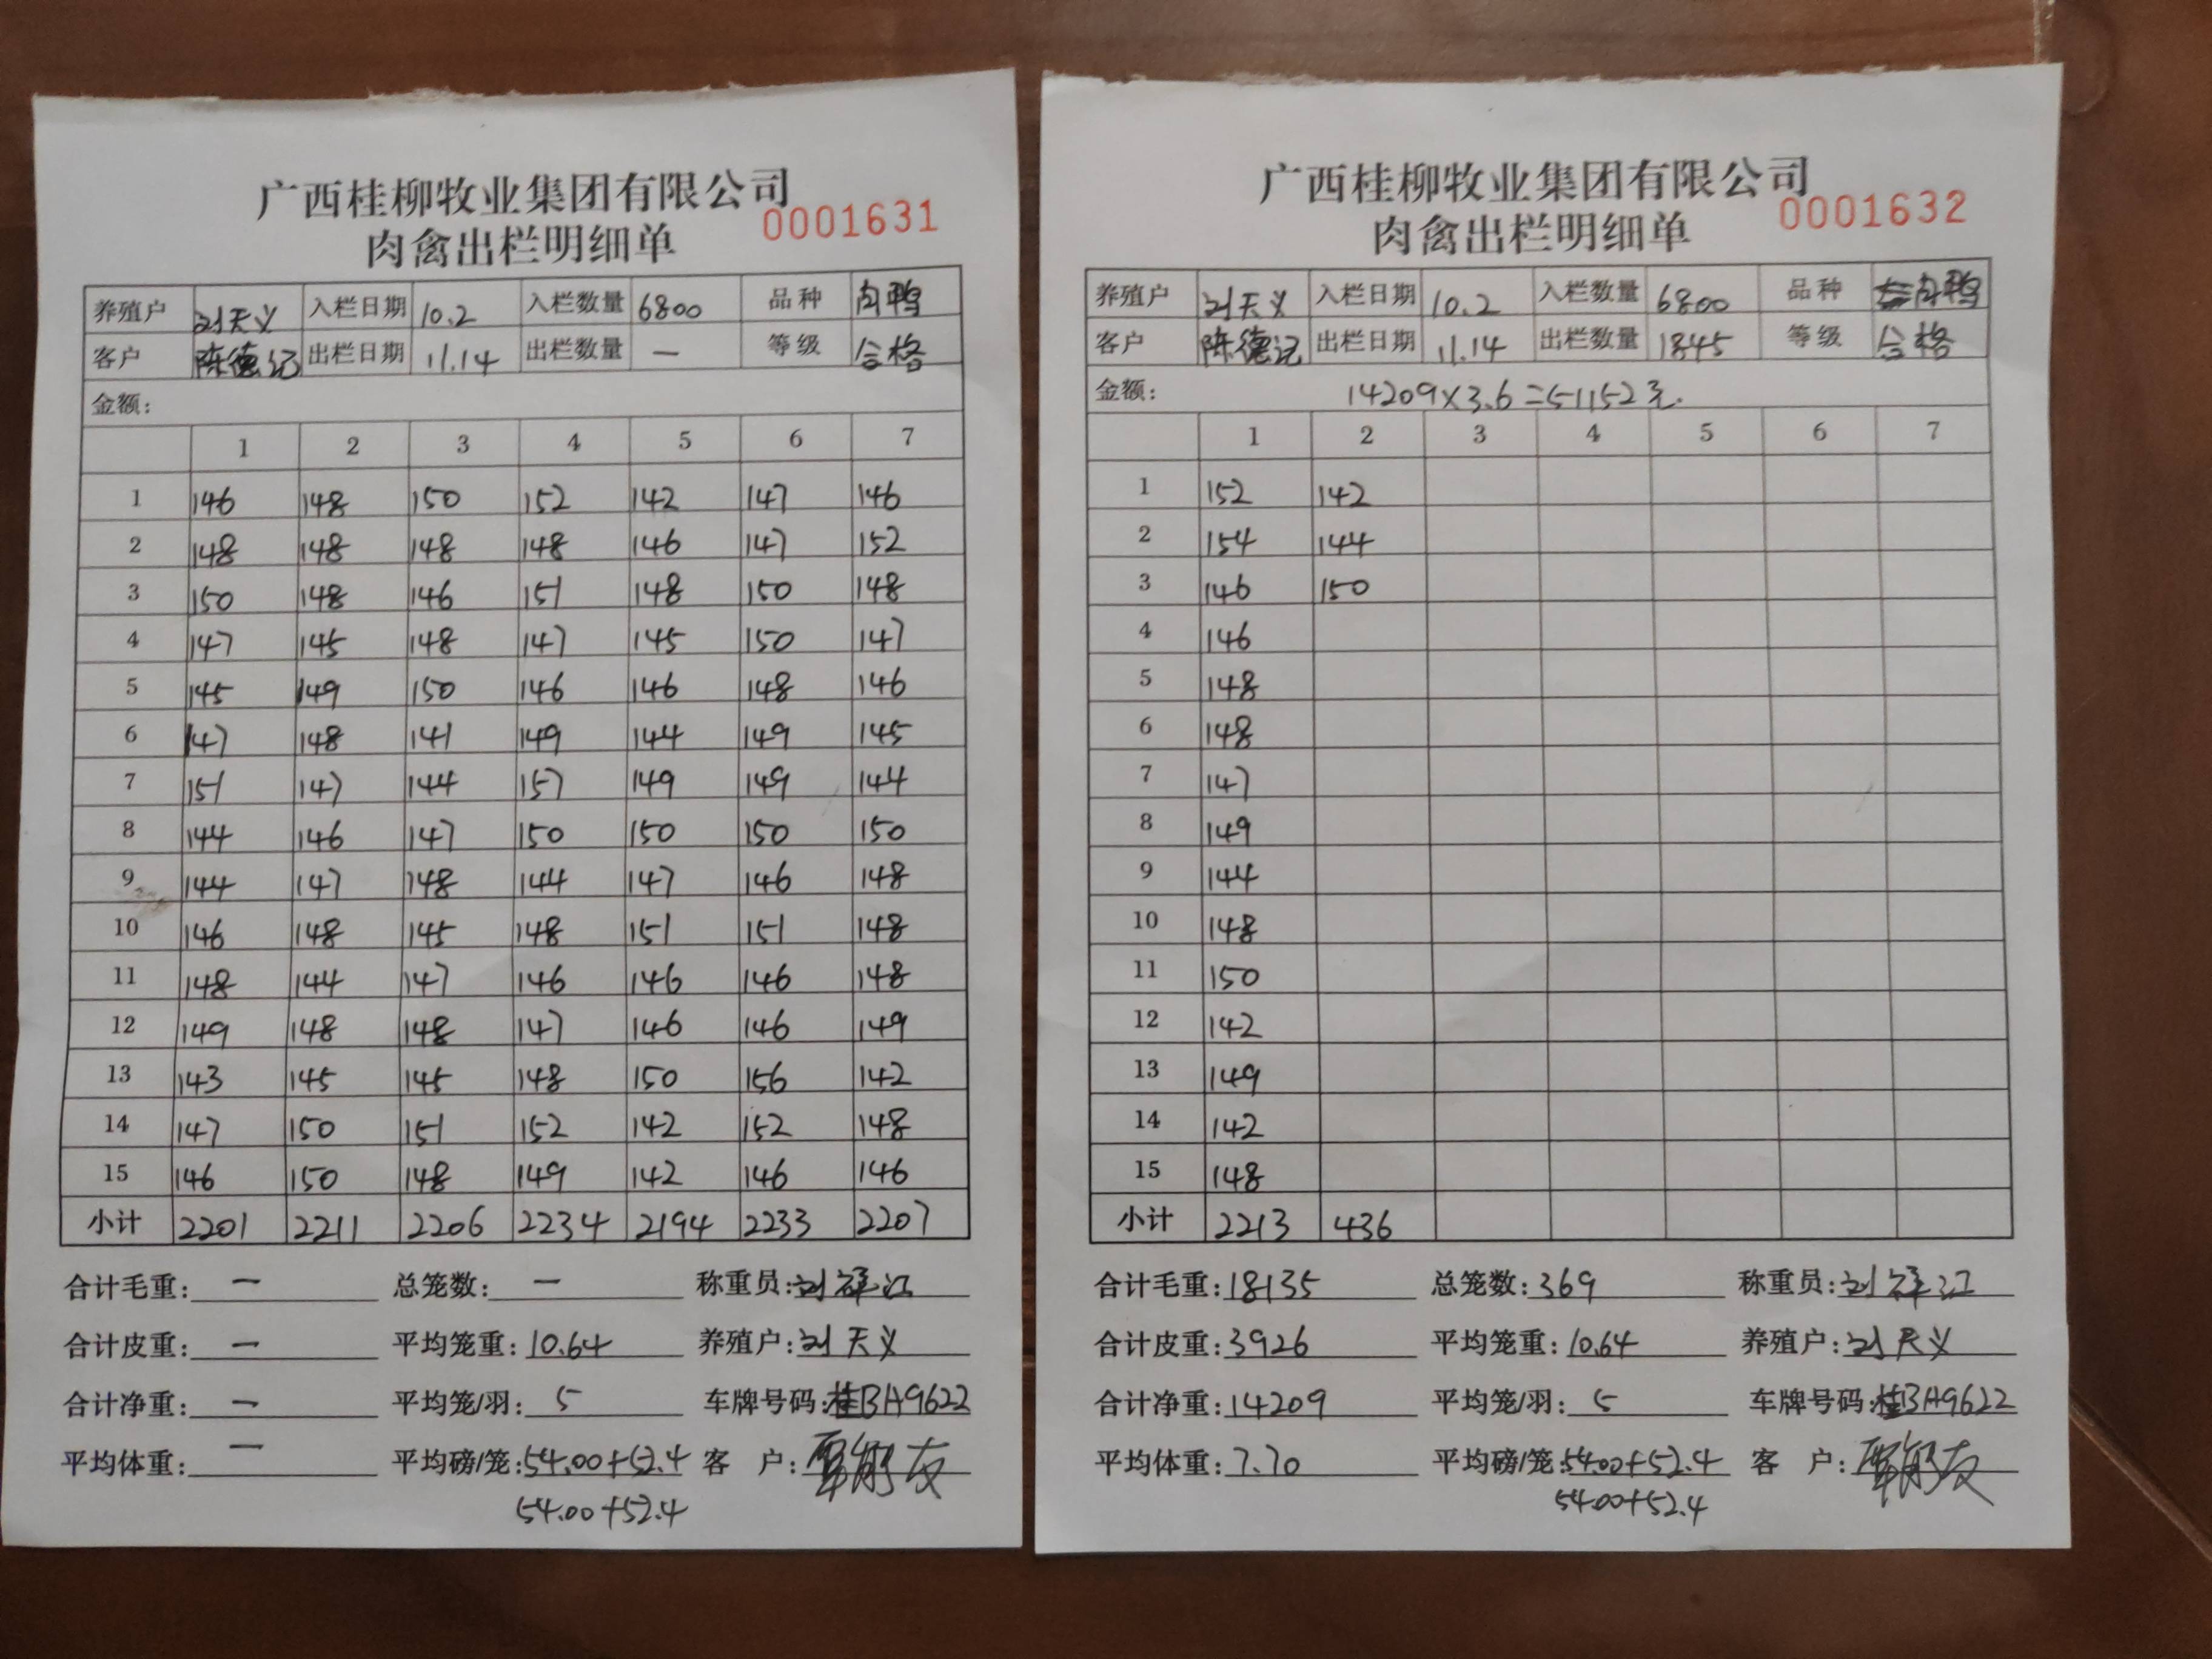 广西桂柳牧业集团有限公司
0001631
肉禽出栏明细单
养殖户 刘天义 入栏日期 10.2 入栏数量 6800 品种 肉鸭
客户 陈德记 出栏日期 11.14 出栏数量 — 等级 合格
金额:
1 2 3 4 5 6 7
1 146 148 150 152 142 147 146
2 148 148 148 148 146 147 152
3 150 148 146 151 148 150 148
4 147 145 148 147 145 150 147
5 145 149 150 146 146 148 146
6 147 148 141 149 144 149 145
7 151 147 144 157 149 149 144
8 144 146 147 150 150 150 150
9 144 147 148 144 147 146 148
10 146 148 145 148 151 151 148
11 148 144 147 146 146 146 148
12 149 148 148 147 146 146 149
13 143 145 145 148 150 156 142
14 147 150 151 152 142 152 148
15 146 150 148 149 142 146 146
小计 2201 2211 2206 2234 2194 2233 2207
合计毛重: — 总笼数: — 称重员: 刘祥江
合计皮重: — 平均笼重: 10.64 养殖户: 刘天义
合计净重: — 平均笼/羽: 5 车牌号码: 桂BA9622
平均体重: — 平均磅/笼: 54.00+52.4 客 户:
54.00+52.4
广西桂柳牧业集团有限公司
0001632
肉禽出栏明细单
养殖户 刘天义 入栏日期 10.2 入栏数量 6800 品种 肉鸭
客户 陈德记 出栏日期 11.14 出栏数量 1845 等级 合格
金额: 14209×3.6=51152元.
1 2 3 4 5 6 7
1 152 142
2 154 144
3 146 150
4 146
5 148
6 148
7 147
8 149
9 144
10 148
11 150
12 142
13 149
14 142
15 148
小计 2213 436
合计毛重: 18135 总笼数: 369 称重员: 刘祥江
合计皮重: 3926 平均笼重: 10.64 养殖户: 刘天义
合计净重: 14209 平均笼/羽: 5 车牌号码: 桂BA9622
平均体重: 7.70 平均磅/笼: 54.00+52.4 客 户:
54.00+52.4